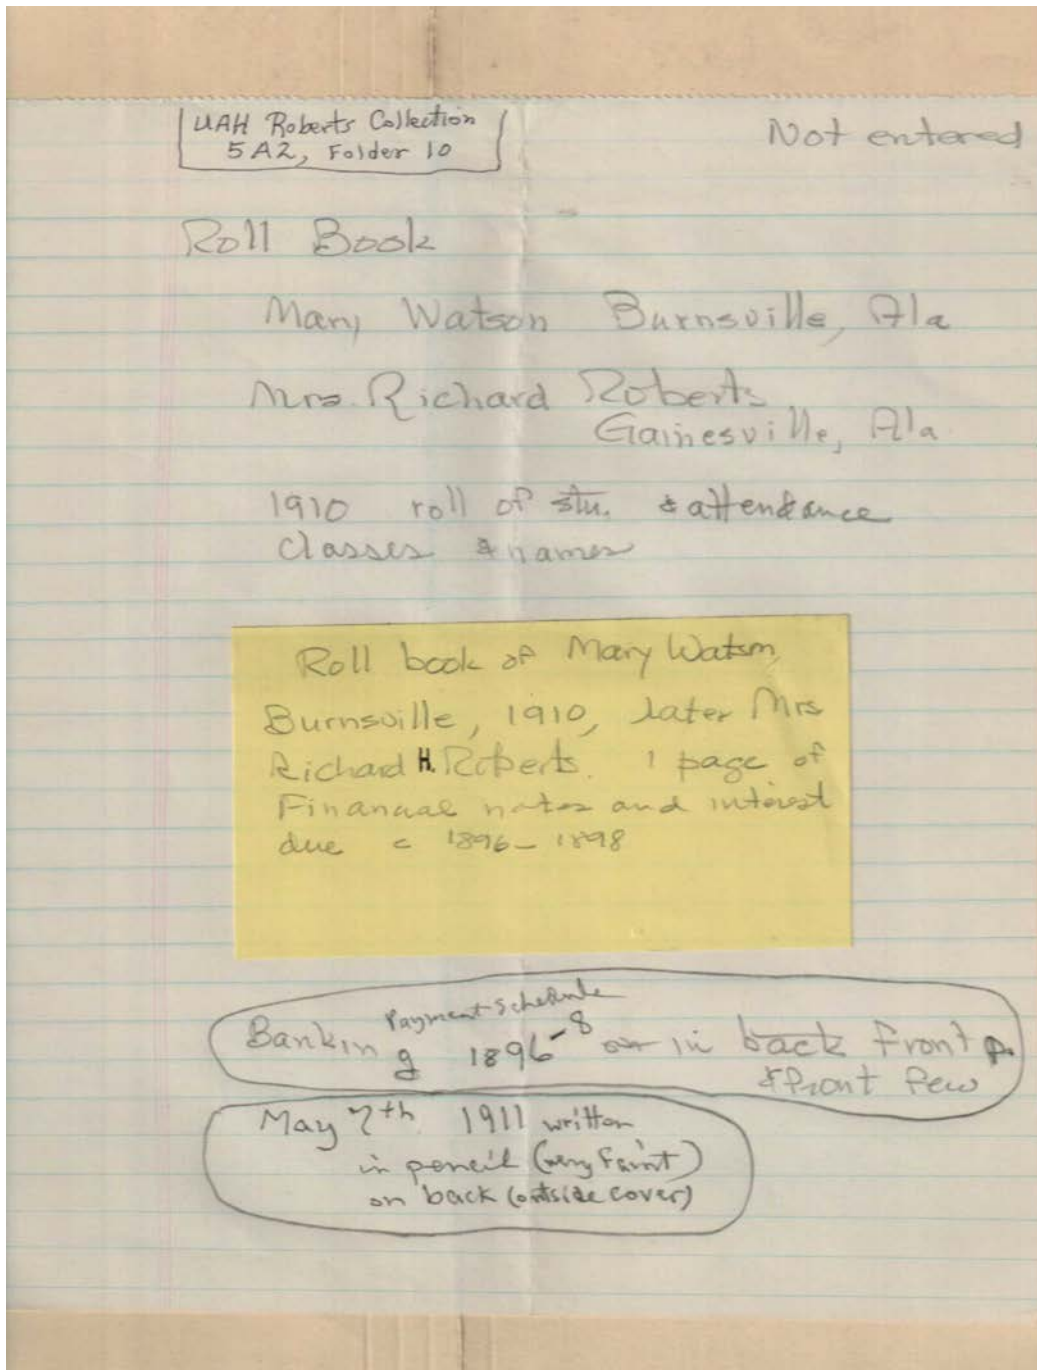 UAH Roberts Collection
5A2, Folder 10
Not entered
Roll Book
Mary Watson Burnsville, Ala
Mrs. Richard Roberts
Gainesville, Ala
1910 roll of stu. & attendance
classes & names
Roll book of Mary Watson
Burnsville, 1910, later Mrs
Richard H. Roberts. 1 page of
Financial notes and interest
due c 1896-1898
Payment Schedule
Banking 1896-8 in back front p.
& front few
May 7th 1911 written
in pencil (very faint)
on back (outside cover)